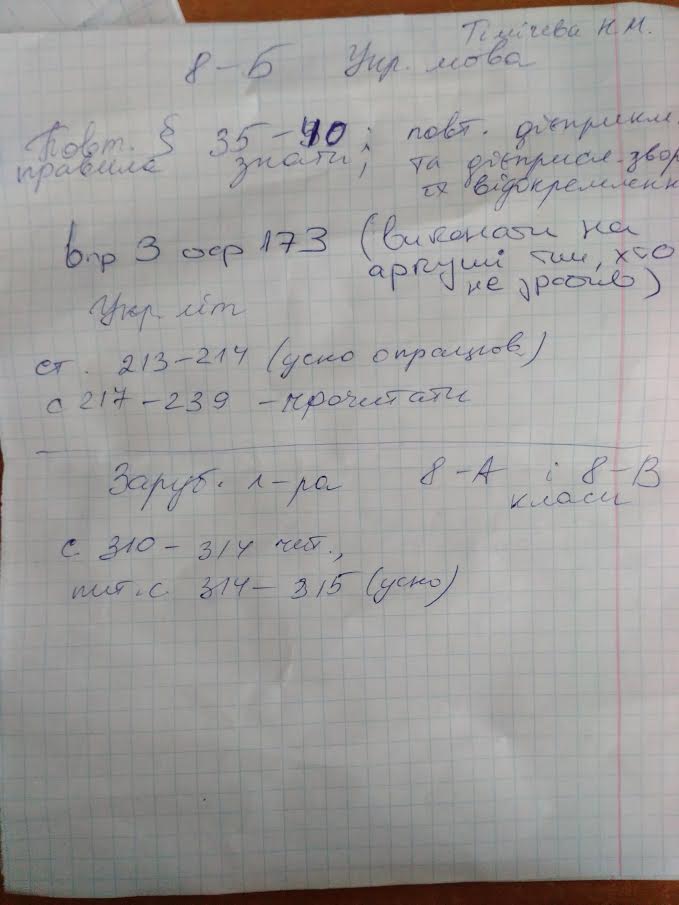 Тімічева Н.М.
8-Б Укр. мова
Повт. § 35-40; повт. дієприкм.
правила знати; та дієприсл. звор
їх відокремленн
впр 3 стр 173 (виконати на
аркуші тим, хто
не зробив)
Укр літ
ст. 213-214 (усно опрацюв.)
с 217-239 - прочитати
Заруб. л-ра 8-А і 8-В
класи
с. 310-314 чит.,
пит. с. 314-315 (усно)